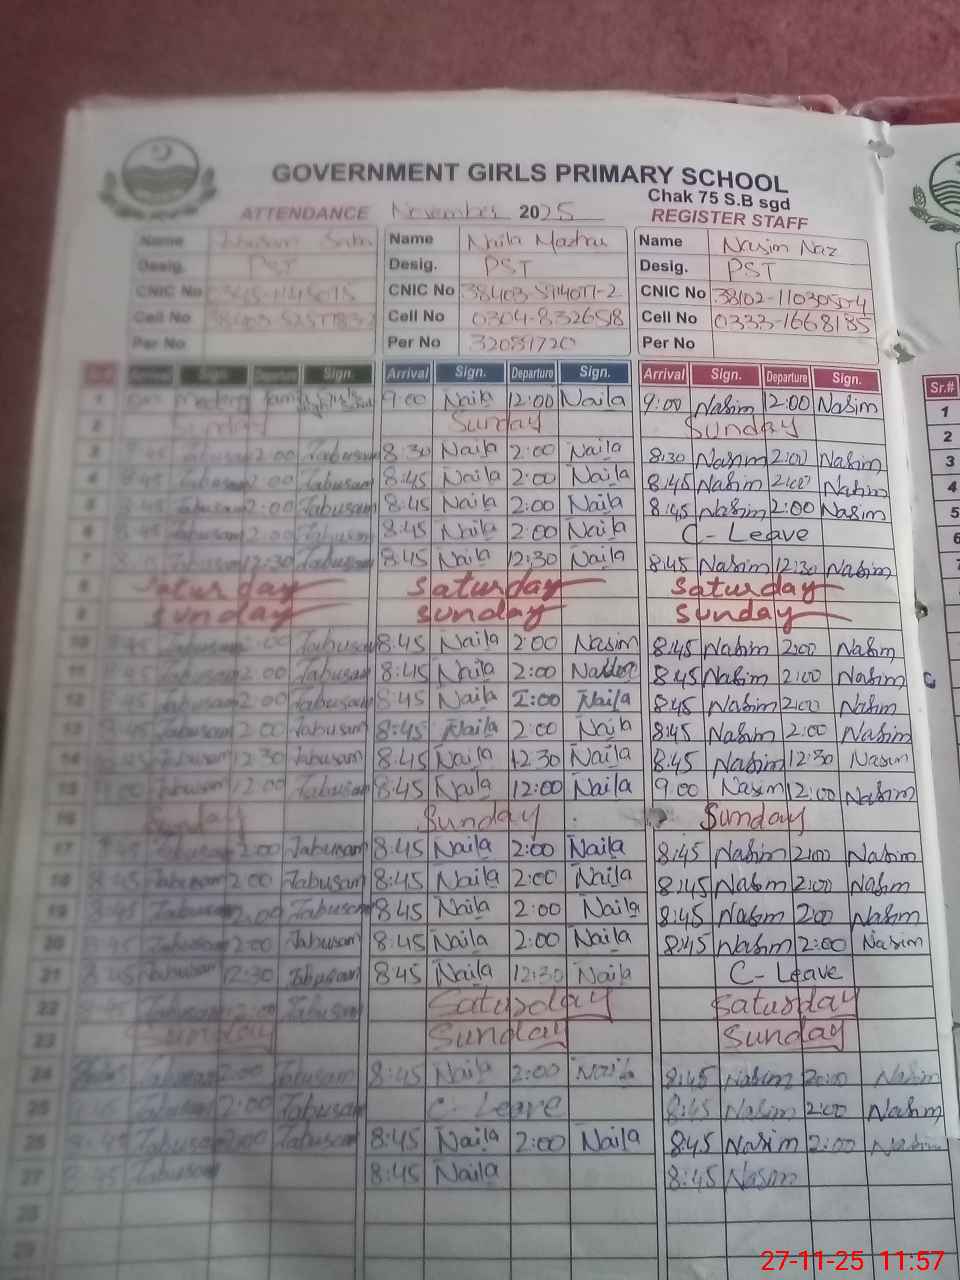 GOVERNMENT GIRLS PRIMARY SCHOOL
Chak 75 S.B sgd
ATTENDANCE November 2025 REGISTER STAFF
Name Name Naila Mazhar Name Nasim Naz
Desig. PST Desig. PST Desig. PST
CNIC No CNIC No CNIC No
Cell No Cell No Cell No 0333-1668185
Per No Per No Per No
Sr.# Arrival Sign. Departure Sign. Arrival Sign. Departure Sign. Arrival Sign. Departure Sign. Sr.#
1 9:00 Naila 12:00 Naila 9:00 Nasim 12:00 Nasim 1
2 Sunday Sunday Sunday 2
3 2:00 Tabusam 8:30 Naila 2:00 Naila 8:30 Nasim 2:00 Nasim 3
4 2:00 Tabusam 8:45 Naila 2:00 Naila 8:45 Nasim 2:00 Nasim 4
5 2:00 Tabusam 8:45 Naila 2:00 Naila 8:45 Nasim 2:00 Nasim 5
6 2:00 Tabusam 8:45 Naila 2:00 Naila C-Leave 6
7 12:30 Tabusam 8:45 Naila 12:30 Naila 8:45 Nasim 12:30 Nasim 7
8 Saturday Saturday Saturday
9 Sunday Sunday Sunday
10 Tabusam 8:45 Naila 2:00 Nasim 8:45 Nasim 2:00 Nasim
11 2:00 Tabusam 8:45 Naila 2:00 8:45 Nasim 2:00 Nasim
12 2:00 Tabusam 8:45 Naila 2:00 Naila 8:45 Nasim 2:00 Nasim
13 2:00 Tabusam 8:45 Naila 2:00 Naila 8:45 Nasim 2:00 Nasim
14 12:30 Tabusam 8:45 Naila 12:30 Naila 8:45 Nasim 12:30 Nasim
15 12:00 Tabusam 8:45 Naila 12:00 Naila 9:00 Nasim 12:00 Nasim
16 Sunday Sunday Sunday
17 2:00 Tabusam 8:45 Naila 2:00 Naila 8:45 Nasim 2:00 Nasim
18 8:45 Tabusam 2:00 Tabusam 8:45 Naila 2:00 Naila 8:45 Nasim 2:00 Nasim
19 8:45 Tabusam 2:00 Tabusam 8:45 Naila 2:00 Naila 8:45 Nasim 2:00 Nasim
20 8:45 Tabusam 2:00 Tabusam 8:45 Naila 2:00 Naila 8:45 Nasim 2:00 Nasim
21 8:45 Tabusam 12:30 Tabusam 8:45 Naila 12:30 Naila C-Leave
22 8:45 Tabusam 2:00 Tabusam Saturday Saturday
23 Sunday Sunday Sunday
24 Tabusam 2:00 Tabusam 8:45 Naila 2:00 Naila 8:45 Nasim 2:00 Nasim
25 Tabusam 2:00 Tabusam C-Leave 8:45 Nasim 2:00 Nasim
26 8:45 Tabusam 2:00 Tabusam 8:45 Naila 2:00 Naila 8:45 Nasim 2:00 Nasim
27 8:45 Tabusam 8:45 Naila 8:45 Nasim
28
29
27-11-25 11:57